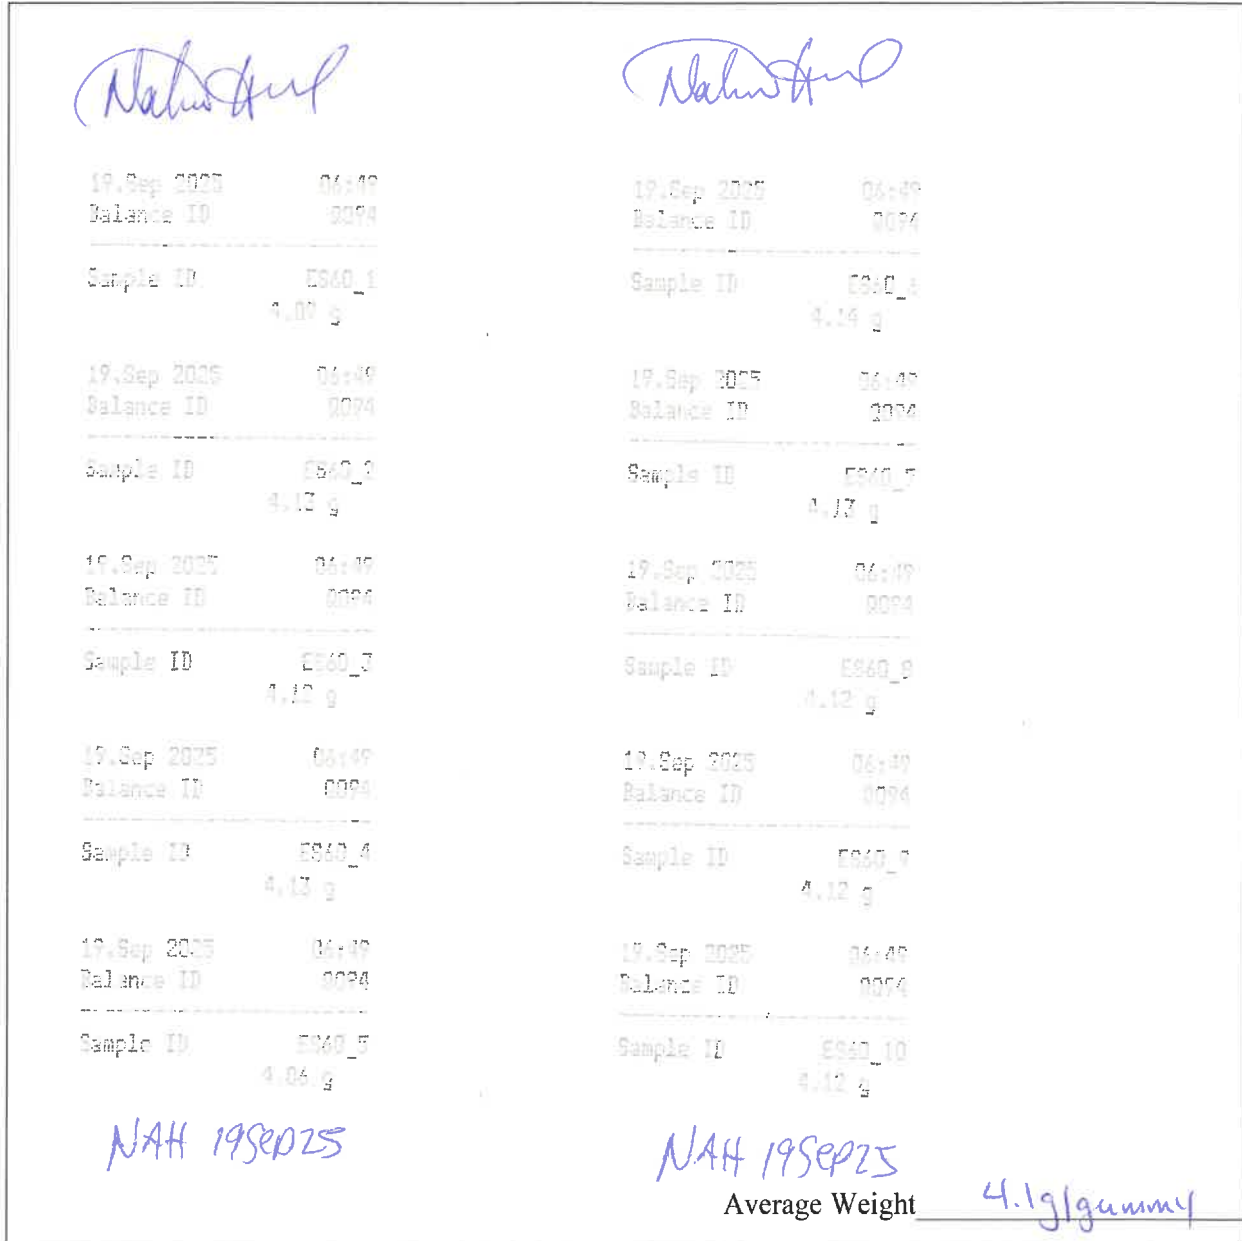 19.Sep 2025 06:49
Balance ID 0094
Sample ID ES60_1
4.07 g
19.Sep 2025 06:49
Balance ID 0094
Sample ID ES60_2
4.13 g
19.Sep 2025 06:49
Balance ID 0094
Sample ID ES60_3
4.12 g
19.Sep 2025 06:49
Balance ID 0094
Sample ID ES60_4
4.13 g
19.Sep 2025 06:49
Balance ID 0094
Sample ID ES60_5
4.06 g
NAH 19Sep25
19.Sep 2025 06:49
Balance ID 0094
Sample ID ES60_6
4.14 g
19.Sep 2025 06:49
Balance ID 0094
Sample ID ES60_7
4.13 g
19.Sep 2025 06:49
Balance ID 0094
Sample ID ES60_8
4.12 g
19.Sep 2025 06:49
Balance ID 0094
Sample ID ES60_9
4.12 g
19.Sep 2025 06:49
Balance ID 0094
Sample ID ES60_10
4.12 g
NAH 19Sep25
Average Weight 4.1g/gummy